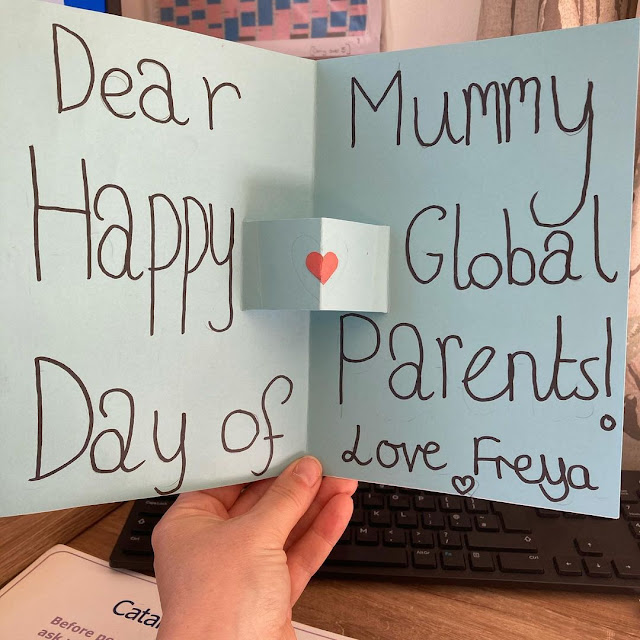 Dear Mummy
Happy Global
Day of Parents!
Love Freya
Catal
Before po
ask i